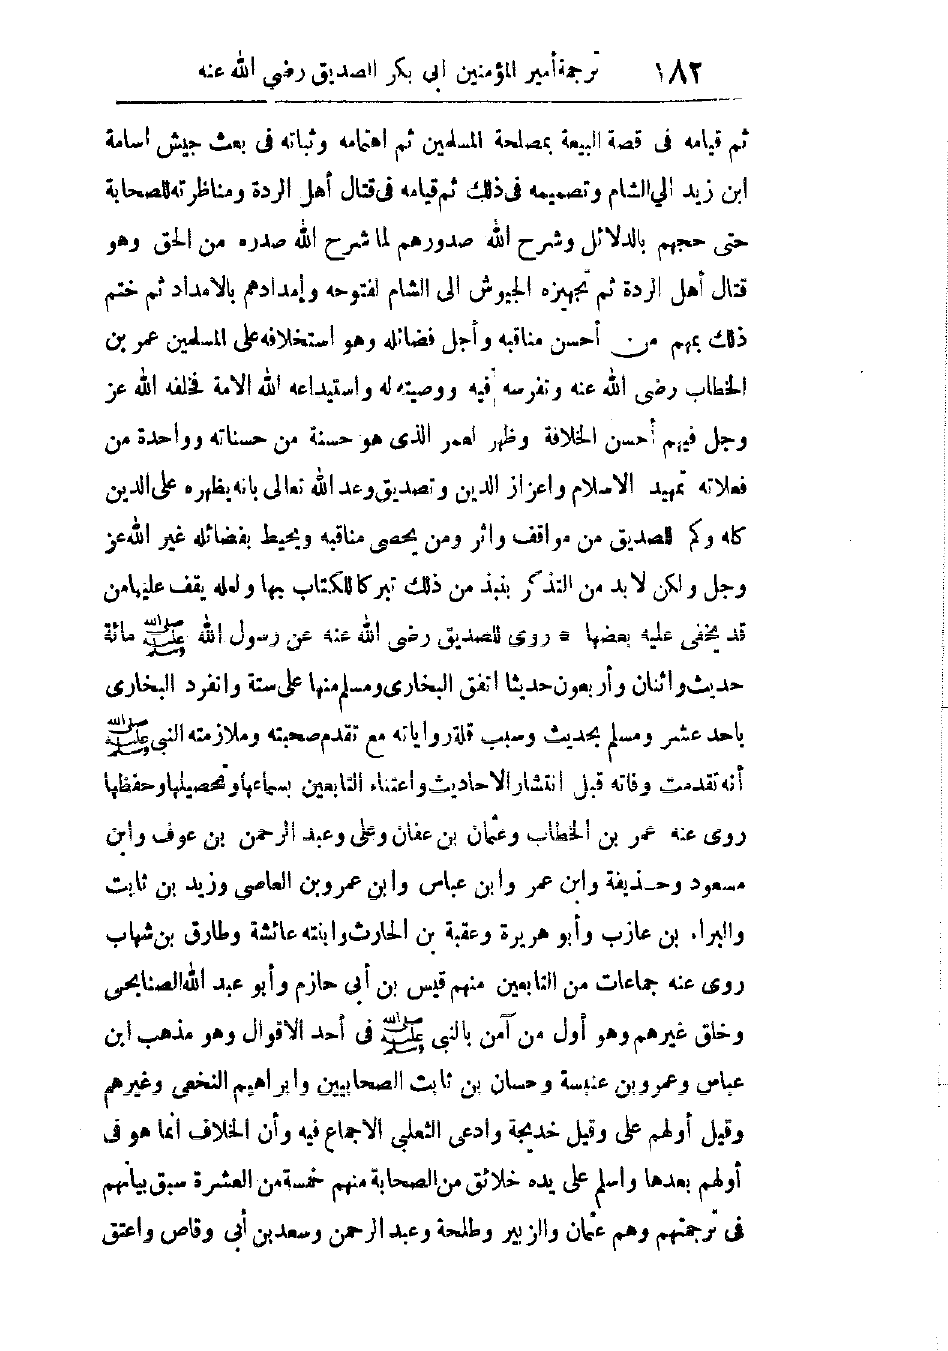 ١٨٢ ترجمة أمير المؤمنين ابى بكر الصديق رضي الله عنه
ثم قيامه فى قصة البيعة بمصلحة المسلمين ثم اهتمامه وثباته فى بعث جيش اسامة
ابن زيد الي الشام وتصميمه فى ذلك ثم قيامه فى قتال أهل الردة ومناظرته للصحابة
حتى حجهم بالدلائل وشرح الله صدورهم لما شرح الله صدره من الحق وهو
قتال أهل الردة ثم تجهيزه الجيوش الى الشام لفتوحه وإمدادهم بالامداد ثم ختم
ذلك بمهم من أحسن مناقبه وأجل فضائله وهو استخلافه على المسلمين عمر بن
الخطاب رضى الله عنه وتفرسه فيه ووصيته له واستيداعه الله الامة فخلفه الله عز
وجل فيهم أحسن الخلافة وظهر لعمر الذى هو حسنة من حسناته وواحدة من
فعلاته تمهيد الاسلام واعزاز الدين وتصديق وعد الله تعالى بانه يظهره على الدين
كله وكم للصديق من مواقف واثر ومن يحصى مناقبه ويحيط بفضائله غير الله عز
وجل ولكن لابد من التذكر بنبذ من ذلك تبركا للكتاب بها ولعله يقف عليها من
قد يخفى عليه بعضها * روى للصديق رضى الله عنه عن رسول الله ﷺ مائة
حديث واثنان وأربعون حديثا اتفق البخارى ومسلم منها على ستة وانفرد البخارى
باحد عشر ومسلم بحديث وسبب قلة رواياته مع تقدم صحبته وملازمته النبى ﷺ
أنه تقدمت وفاته قبل انتشار الاحاديث واعتناء التابعين بسماعها وتحصيلها وحفظها
روى عنه عمر بن الخطاب وعثمان بن عفان وعلى وعبد الرحمن بن عوف وابن
مسعود وحذيفة وابن عمر وابن عباس وابن عمرو بن العاصى وزيد بن ثابت
والبراء بن عازب وأبو هريرة وعقبة بن الحارث وابنته عائشة وطارق بن شهاب
روى عنه جماعات من التابعين منهم قيس بن أبى حازم وأبو عبد الله الصنابحى
وخلق غيرهم وهو أول من آمن بالنبى ﷺ فى أحد الاقوال وهو مذهب ابن
عباس وعمرو بن عنبسة وحسان بن ثابت الصحابيين وابراهيم النخعى وغيرهم
وقيل أولهم على وقيل خديجة وادعى الثعلبى الاجماع فيه وأن الخلاف انما هو فى
أولهم بعدها واسلم على يده خلائق من الصحابة منهم خمسة من العشرة سبق بيانهم
فى ترجمتهم وهم عثمان والزبير وطلحة وعبد الرحمن وسعد بن أبى وقاص واعتق